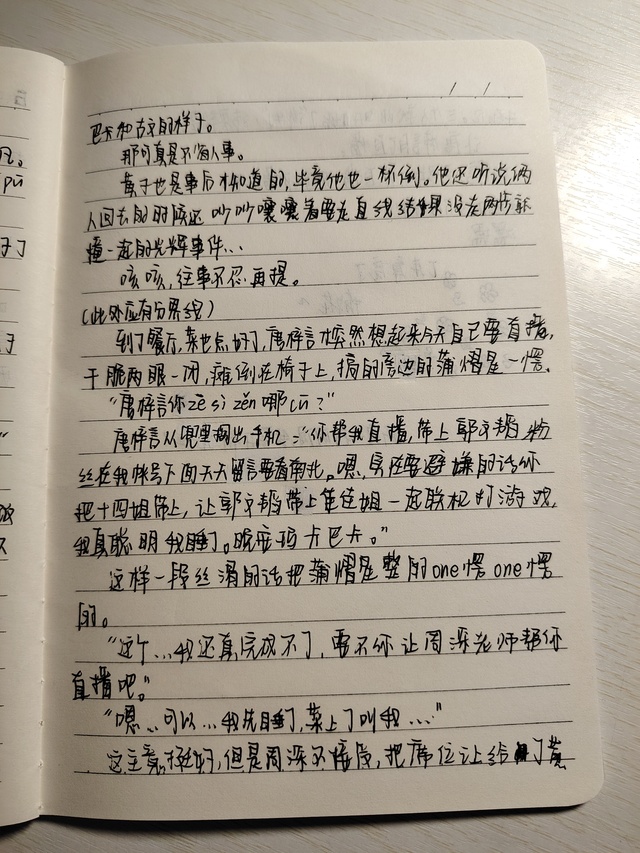 巴卡和古文的样子。
那可真是不省人事。
黄子也是事后才知道的,毕竟他也一杯倒。他还听说俩
人回去的时候还吵吵嚷嚷着要走直线结果没走两步就
撞一起的光辉事件...
咳咳,往事不忍再提。
(此处应有分界线)
到了餐厅,菜也点好了,唐梓言才突然想起来今天自己要直播,
干脆两眼一闭,瘫倒在椅子上,搞的旁边的蒲熠是一愣。
“唐梓言你zě sì zěn哪cū?”
唐梓言从兜里掏出手机:“你帮我直播,带上郭文韬,粉
丝在我帐号下面天天留言要看南北。嗯,实在要避嫌的话你
把十四姐带上,让郭文韬带上隹姐一起联机打游戏,
我真聪明我睡了。晚安玛卡巴卡。”
这样一段丝滑的话把蒲熠是整的one愣one愣
的。
“这个...我还真完成不了,要不你让周深老师帮你
直播吧。”
“嗯...可以...我先睡了,菜上了叫我...”
这主意挺好,但是周深不接段,把席位让给了黄